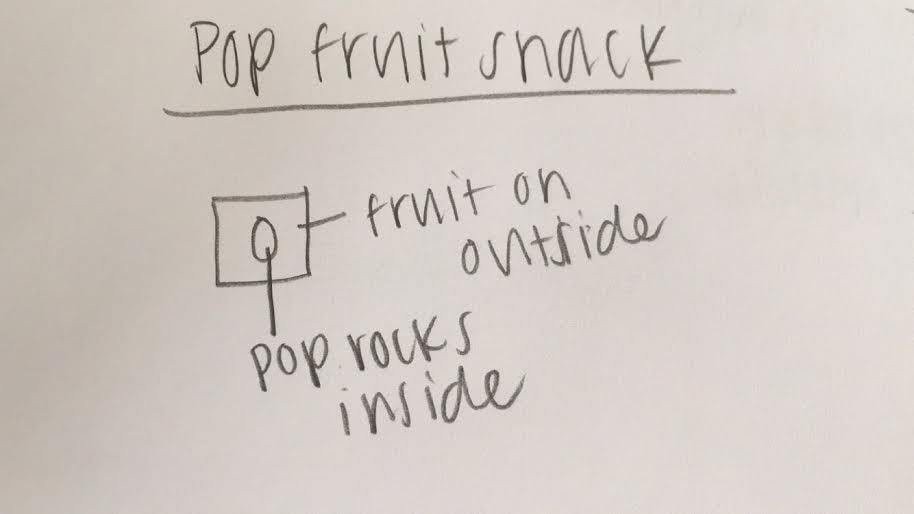 Pop fruit snack
fruit on
outside
pop rocks
inside